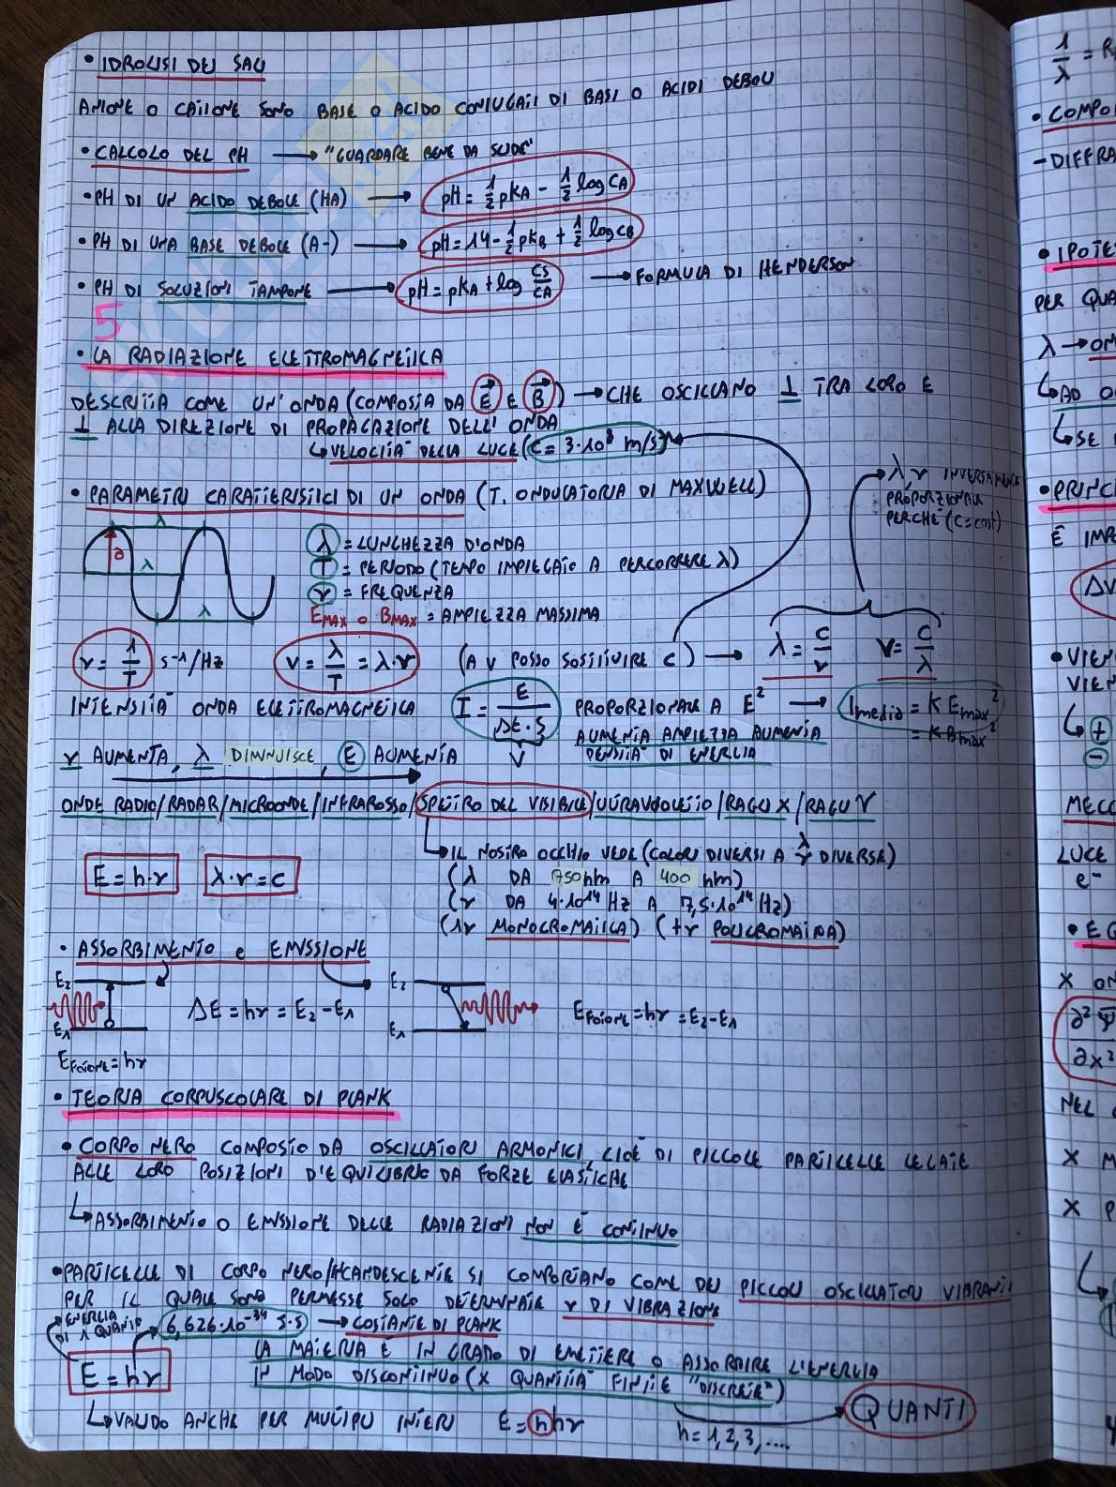 • IDROLISI DEI SALI
ANIONE O CATIONE SONO BASE O ACIDO CONIUGATI DI BASI O ACIDI DEBOLI
• CALCOLO DEL PH → "GUARDARE BENE DA SLIDE"
• PH DI UN ACIDO DEBOLE (HA) → pH = 1/2 pKA - 1/2 log CA
• PH DI UNA BASE DEBOLE (A-) → pH = 14 - 1/2 pKB + 1/2 log CB
• PH DI SOLUZIONI TAMPONE → pH = pKA + log CS/CA → FORMULA DI HENDERSON
5
• LA RADIAZIONE ELETTROMAGNETICA
DESCRITTA COME UN'ONDA (COMPOSTA DA E⃗ E B⃗) → CHE OSCILLANO ⊥ TRA LORO E
⊥ ALLA DIREZIONE DI PROPAGAZIONE DELL'ONDA
↳ VELOCITÀ DELLA LUCE (C = 3·10⁸ m/s)
λ, ν INVERSAMENTE
PROPORZIONALI
PERCHÈ (C = cost)
• PARAMETRI CARATTERISTICI DI UN ONDA (T. ONDULATORIA DI MAXWELL)
λ
a
λ
λ
λ = LUNGHEZZA D'ONDA
T = PERIODO (TEMPO IMPIEGATO A PERCORRERE λ)
ν = FREQUENZA
EMAX O BMAX = AMPIEZZA MASSIMA
ν = 1/T s⁻¹/Hz V = λ/T = λ·ν (A V POSSO SOSTITUIRE C) → λ = C/ν ν = C/λ
INTENSITÀ ONDA ELETTROMAGNETICA I = E/(Δt·S) PROPORZIONALE A E² → Imedia = K Emax²
= K Bmax²
AUMENTA AMPIEZZA AUMENTA
DENSITÀ DI ENERGIA
V
ν AUMENTA, λ DIMINUISCE, E AUMENTA
ONDE RADIO/RADAR/MICROONDE/INFRAROSSO/SPETTRO DEL VISIBILE/ULTRAVIOLETTO/RAGGI X/RAGGI γ
E = h·ν λ·ν = C
↳ IL NOSTRO OCCHIO VEDE (COLORI DIVERSI A λ ν DIVERSA)
(λ DA 750 nm A 400 nm)
(ν DA 4·10¹⁴ Hz A 7,5·10¹⁴ Hz)
(1ν MONOCROMATICA) (+ν POLICROMATICA)
• ASSORBIMENTO e EMISSIONE
E₂
E₁
ΔE = hν = E₂-E₁
E₂
E₁
Efotone = hν = E₂-E₁
Efotone = hν
• TEORIA CORPUSCOLARE DI PLANK
• CORPO NERO COMPOSTO DA OSCILLATORI ARMONICI CIOÈ DI PICCOLE PARTICELLE LEGATE
ALLE LORO POSIZIONI D'EQUILIBRIO DA FORZE ELASTICHE
↳ ASSORBIMENTO O EMISSIONE DELLE RADIAZIONI NON È CONTINUO
• PARTICELLE DI CORPO NERO/INCANDESCENTE SI COMPORTANO COME DEI PICCOLI OSCILLATORI VIBRANTI
PER IL QUALE SONO PERMESSE SOLO DETERMINATE ν DI VIBRAZIONE
ENERGIA
DI 1 QUANTO
6,626·10⁻³⁴ J·s → COSTANTE DI PLANK
E = hν
LA MATERIA È IN GRADO DI EMETTERE O ASSORBIRE L'ENERGIA
IN MODO DISCONTINUO (X QUANTITÀ FINITE "DISCRETE")
QUANTI
↳ VALIDO ANCHE PER MULTIPLI INTERI E = nhν
n = 1,2,3,....
1/λ = R
• COMPO
- DIFFRA
• IPOTE
PER QUA
λ → ON
↳ AD O
↳ SE
• PRINCI
È IMP
ΔV
• VIEN
VIEN
↳ +
-
MECC
LUCE
e⁻
• EQ
X ON
∂²Ψ
∂x²
NEL
X M
X P